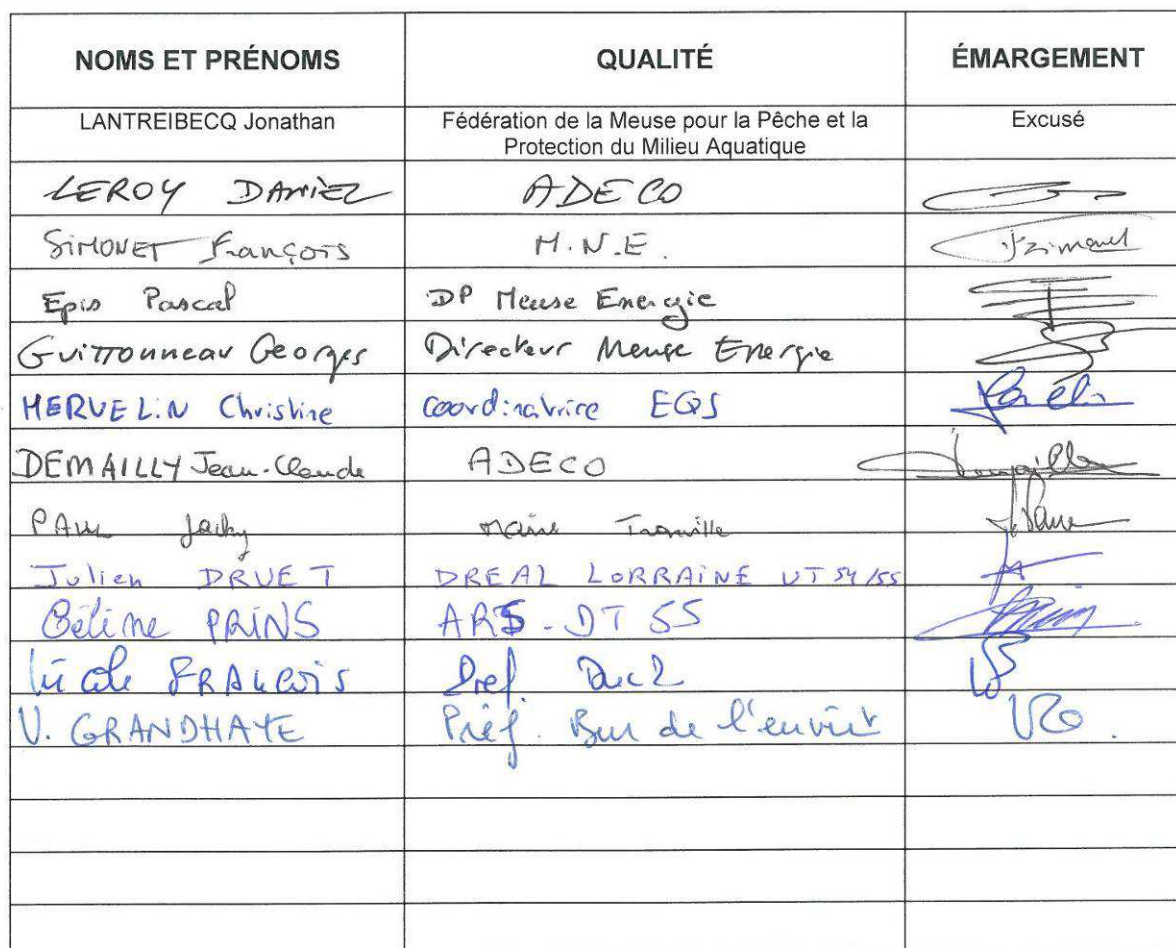 NOMS ET PRÉNOMS QUALITÉ ÉMARGEMENT
LANTREIBECQ Jonathan Fédération de la Meuse pour la Pêche et la Excusé
Protection du Milieu Aquatique
LEROY DANIEL ADECO
SIMONET François M.N.E.
Epis Pascal DP Meuse Energie
Guittonneau Georges Directeur Meuse Energie
HERVELIN Christine coordinatrice EQS
DEMAILLY Jean-Claude ADECO
PAUL Jacky Maire Tronville
Julien DRUET DREAL LORRAINE UT 54/55
Céline PRINS ARS - DT 55
FRANCOIS Pref.
V. GRANDHAYE Préf. Bur de l'envirt